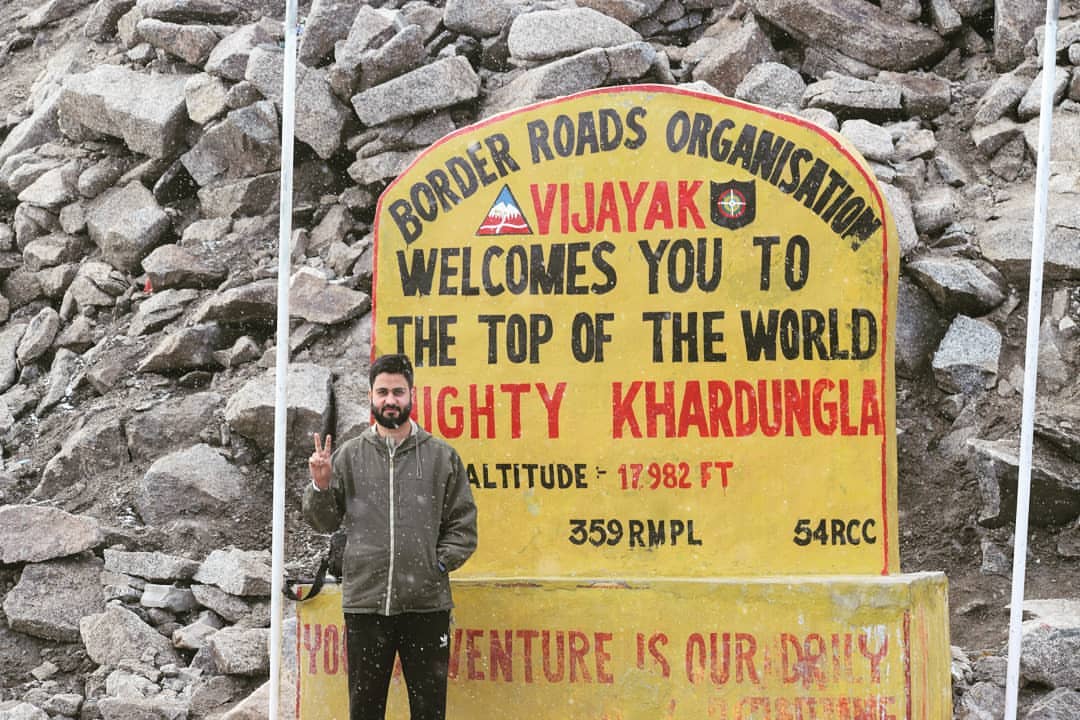 BORDER ROADS ORGANISATION
VIJAYAK
WELCOMES YOU TO
THE TOP OF THE WORLD
MIGHTY KHARDUNGLA
ALTITUDE :- 17,982 FT
359 RMPL 54RCC
VENTURE IS OUR DAILY